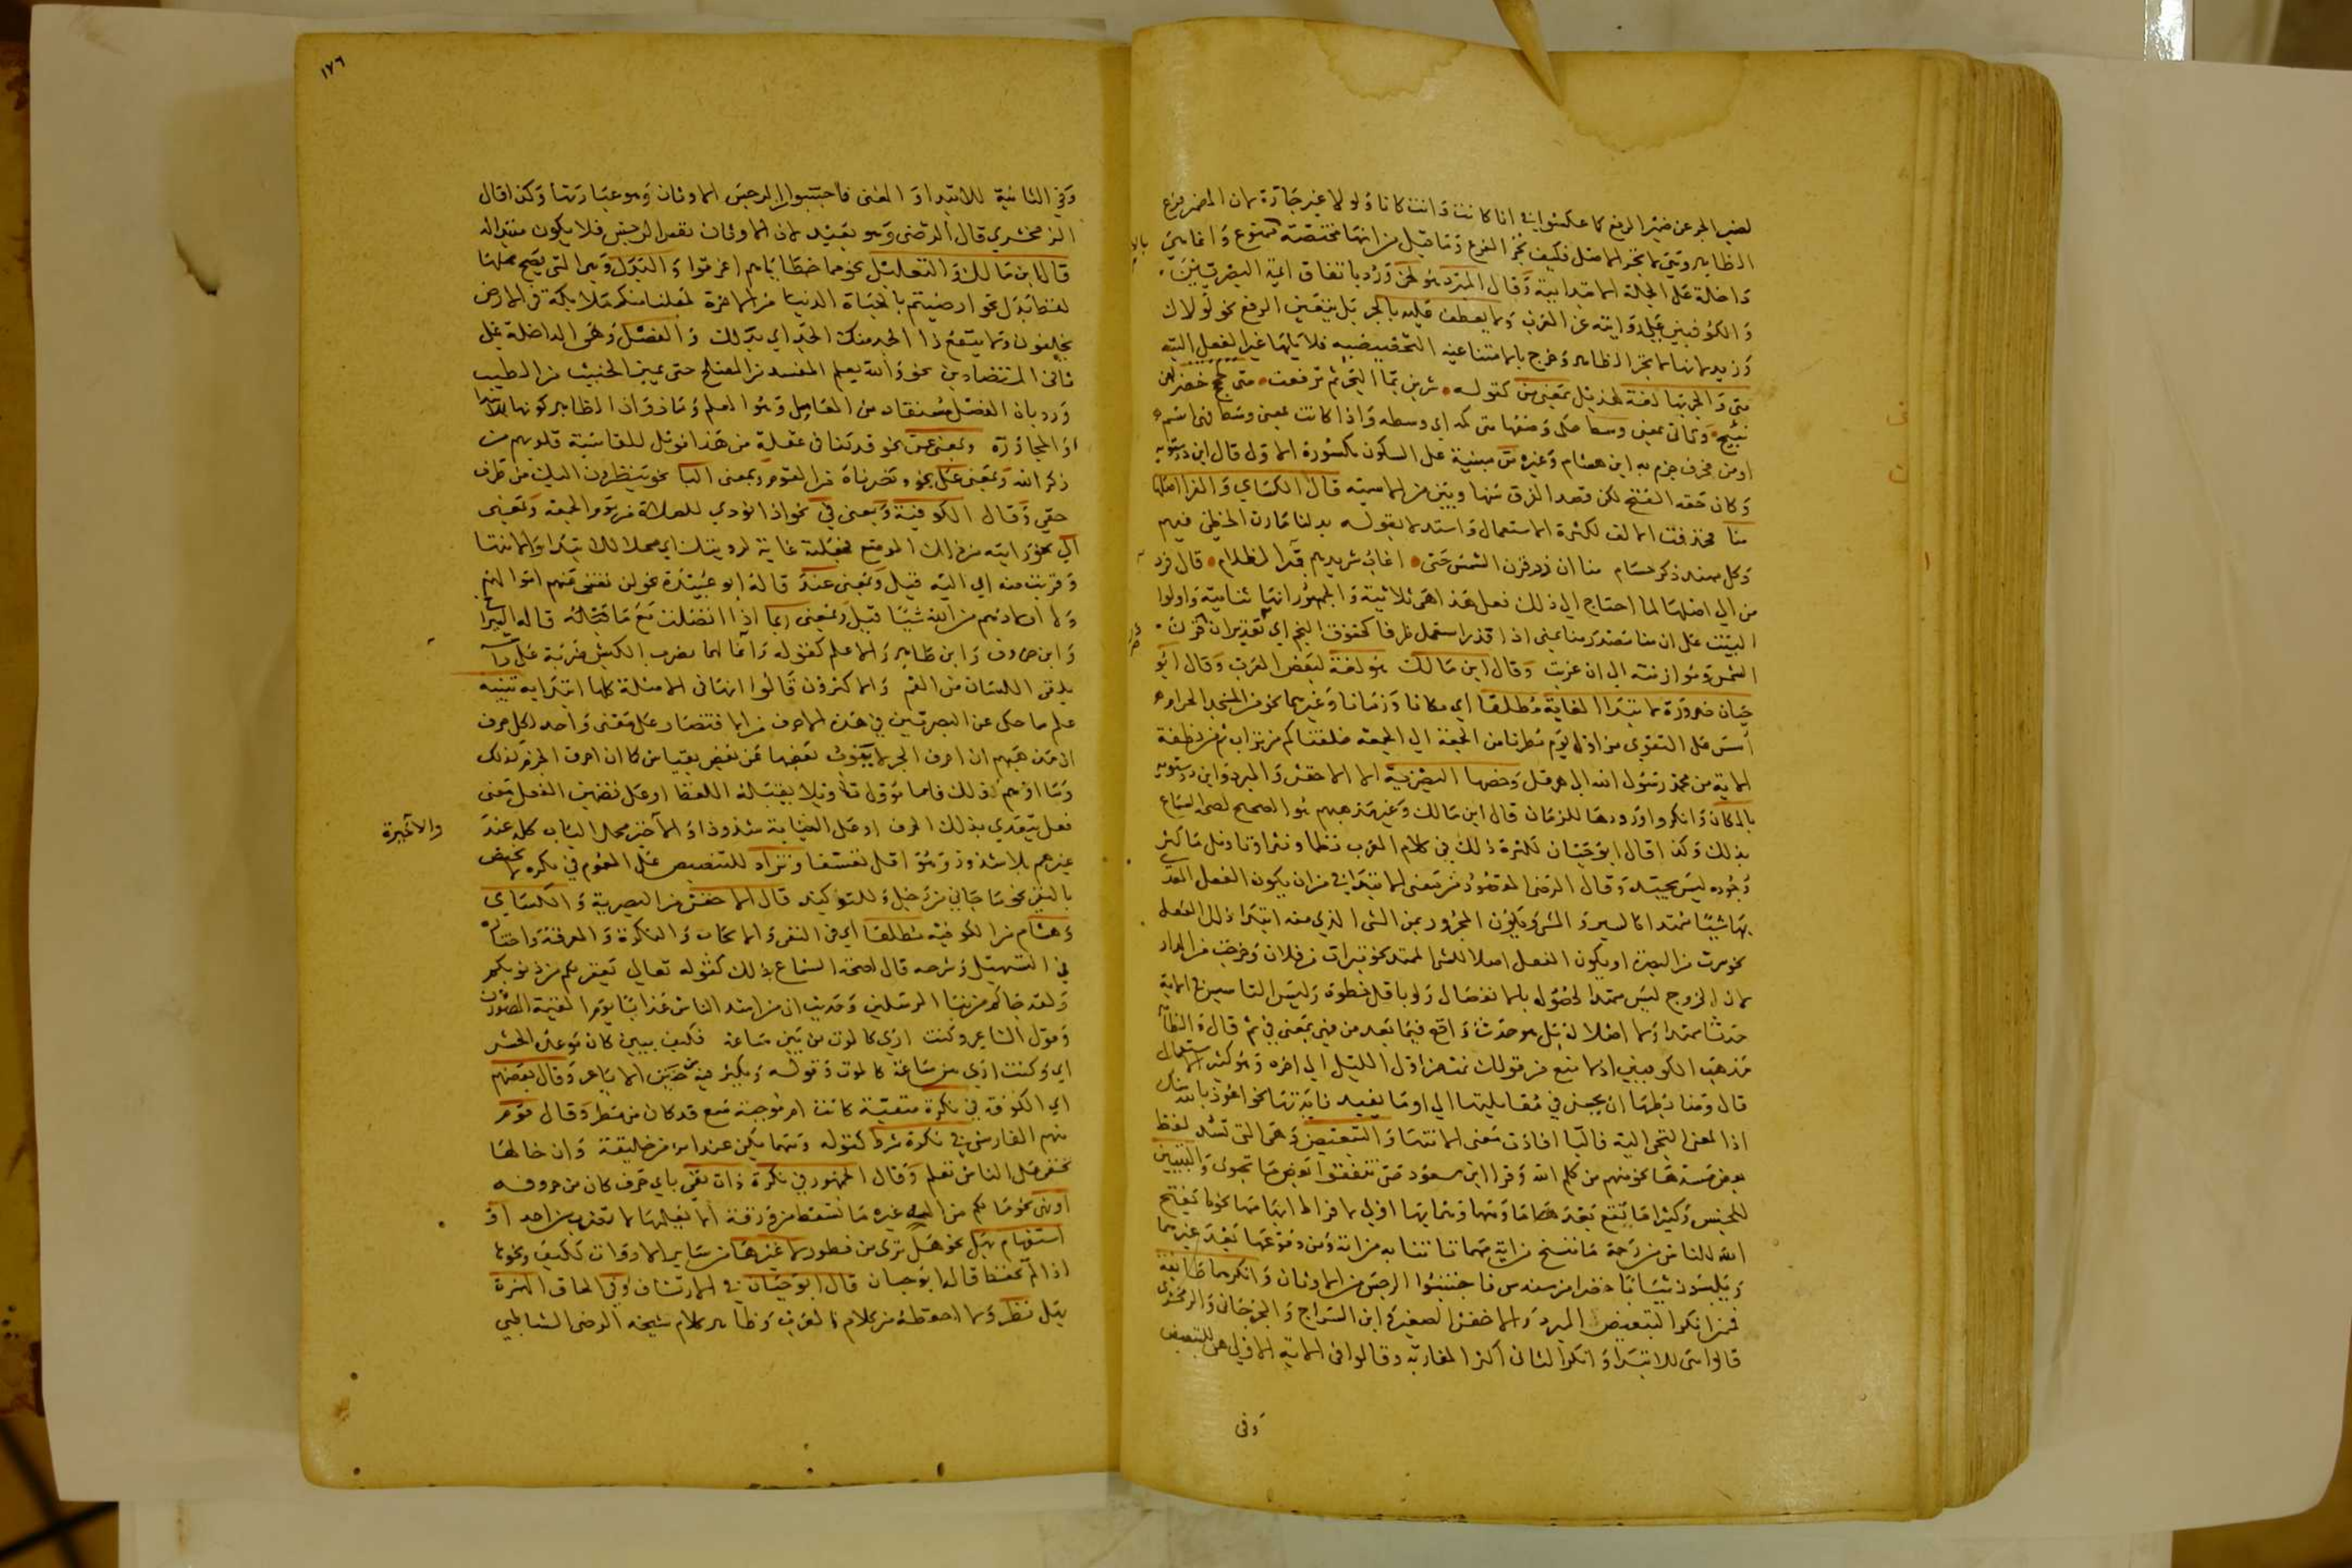 لضمير الجر عن ضمير الرفع كما عكسوا في انا كانت وانت كانا ولولا غير جارة لان المضمر فرع
الظاهر وهي لا تجر الاصل فكيف تجر الفرع
داخلة على الجملة الابتدائية وقال المبرد هو لحن ورد باتفاق ائمة البصريين
والكوفيين على روايته عن العرب ولا يعطف عليه بالجر بل يتعين الرفع نحو لولاك
وزيد لانها لا تجر الظاهر
متى والجر بها لغة هذيل بمعنى من كقوله شربن بماء البحر ثم ترفعت متى لجج خضر لهن
نئيج وتاتي بمعنى وسط حكى وضعها متى كمه اي وسطه واذا كانت بمعنى وسط فهي اسم
او من فحرف جزم به ابن هشام وغيره من مبنية على السكون مكسورة الاول قال ابن درستويه
وكان حقه الفتح لكن قصد الفرق بينها وبين من الاسمية قال الكساي والفرا اصلها
منا فحذفت الالف لكثرة الاستعمال واستدلا بقوله بذلنا مارن الخطي فيهم
وكل مهند ذكر حسام منا ان ذر قرن الشمس حتى اغاب شريدهم قتر الظلام قال فرد
من الى اصلها لما احتاج الى ذلك فعل هذا هي ثلاثية والجمهور انها ثنائية واولوا
البيت على ان منا مصدر منا يمنى اذا قدر استعمل ظرفا كخفوق النجم اي تقدير ان ذر قرن
الشمس وموازنته الى ان غربت وقال ابن مالك هو لغة لبعض العرب وقال ابو
حيان ضرورة لابتداء الغاية مطلقا اي مكانا وزمانا وغيرهما نحو من المسجد الحرام
اسس على التقوى من اول يوم مطرنا من الجمعة الى الجمعة خلقناكم من تراب ثم من نطفة
الاية من محمد رسول الله الى هرقل وخصها البصرية الا الاخفش والمبرد وابن درستويه
بالمكان وانكروا ورودها للزمان قال ابن مالك وغير مذهبهم هو الصحيح لصحة السماع
بذلك وكذا قال ابو حيان لكثرة ذلك في كلام العرب نظما ونثرا وتاويل ما كثر
وجوده ليس بجيد وقال الرضي المقصود من معنى الابتداء في من ان يكون الفعل المعدى
بها شيئا ممتدا كالسير والمشي ويكون المجرور بمن الشي الذي منه ابتداء ذلك الفعل
نحو سرت من البصرة او يكون الفعل اصلا للشي الممتد نحو تبرات من فلان وخرجت من الدار
لان الخروج ليس ممتدا لحصوله بالانفصال ولو باقل خطوة وليس التاسيس في الاية
حدثا ممتدا ولا اصلا له بل هو حدث واقع فيما بعد من فهي بمعنى في ثم قال والظاهر
مذهب الكوفيين اذ لا منع من قولك نمت من اول الليل الى اخره وهو كثير الاستعمال
قال وضابطها ان يحسن في مقابلتها الى او ما يفيد فايدتها نحو اعوذ بالله منك
اذ المعنى التجي اليه فالبا افادت معنى الانتها والتبعيض وهي التي تسد لفظ
بعض مسدها نحو منهم من كلم الله وقرا ابن مسعود حتى تنفقوا بعض ما تحبون والتبيين
للجنس وكثيرا ما تقع بعد ما ومهما وهما بها اولى لافراط ابهامهما نحو ما يفتح
الله للناس من رحمة ما ننسخ من اية مهما تاتنا به من اية ومن وقوعها بعد غيرهما
ويلبسون ثيابا خضرا من سندس فاجتنبوا الرجس من الاوثان وانكرهما طائفة
فمن انكر التبعيض المبرد والاخفش الصغير وابن السراج والجرجاني والزمخشري
قالوا هي للابتداء وانكر الثاني اكثر المغاربة وقالوا في الاية الاولى هي للتبعيض
وفي
١٧٦
وفي الثانية للابتداء والمعنى فاجتنبوا الرجس من الاوثان وهو عبادتها وكذا قال
الزمخشري قال الرضي وهو بعيد لان الاوثان نفس الرجس فلا يكون مبتدا له
قال ابن مالك والتعليل نحو مما خطاياهم اغرقوا والبدل وهي التي يصح محلها
لفظ بدل نحو ارضيتم بالحياة الدنيا من الاخرة لجعلنا منكم ملائكة في الارض
يخلفون ولا ينفع ذا الجد منك الجد اي بدلك والفصل وهي الداخلة على
ثاني المتضادين نحو والله يعلم المفسد من المصلح حتى يميز الخبيث من الطيب
ورد بان الفصل مستفاد من العامل وهو العلم وماز وان الظاهر كونها للابتدا
او المجاوزة وبمعنى عن نحو قد كنا في غفلة من هذا فويل للقاسية قلوبهم من
ذكر الله وبمعنى على نحو ونصرناه من القوم وبمعنى البا نحو ينظرون اليك من طرف
خفي وقال الكوفية وبمعنى في نحو اذا نودي للصلاة من يوم الجمعة وبمعنى
الى نحو رايته من ذلك الموضع فجعلته غاية لرؤيتك اي محلا للابتداء والانتها
وقربت منه اي اليه قيل وبمعنى عند قاله ابو عبيدة نحو لن تغني عنهم اموالهم
ولا اولادهم من الله شيئا قيل وبمعنى ربما اذا اتصلت مع ما كقوله قاله السيرافي
وابن خروف وابن طاهر والاعلم كقوله وانا لمما نضرب الكبش ضربة على راسه
يلقى اللسان من الفم والاكثرون قالوا انها في الامثلة كلها ابتدائية تنبيه
علم ما حكى عن البصريين في هذه الاحرف من الاقتصار على معنى واحد لكل حرف
ان مذهبهم ان احرف الجر لا ينوب بعضها عن بعض بقياس كما ان احرف الجزم كذلك
وما اوهم ذلك فاما مؤول تاويلا يقبله اللفظ او على تضمين الفعل معنى
فعل يتعدى بذلك الحرف او على النيابة شذوذا والاخير محل الباب كله عند
والاخيرة
غيرهم بلا شذوذ وهو اقل تعسفا وتزاد للتنصيص على العموم في نكرة لا تختص
بالنفي نحو ما جاني من رجل وللتوكيد قال الاخفش من البصرية والكساي
وهشام من الكوفية مطلقا اي في النفي والايجاب والنكرة والمعرفة واختاره
في التسهيل وشرحه قال لصحة السماع بذلك كقوله تعالى يغفر لكم من ذنوبكم
ولقد جاك من نبا المرسلين وحديث ان من اشد الناس عذابا يوم القيمة المصورون
وقول الشاعر وكنت ارى كالموت من بين ساعة فكيف ببين كان موعده الحشر
اي وكنت ارى بين ساعة كالموت وقوله ويكثر فيه من حنين الاباعر وقال بعضهم
اي الكوفة في نكرة منفية كانت ام موجبة سمع قد كان من مطر وقال قوم
منهم الفارسي في نكرة شرط كقوله ومهما يكن عند امرء من خليقة وان خالها
تخفى على الناس تعلم وقال الجمهور في نكرة ذات نفي باي حرف كان من حروفه
او نهي نحو ما لكم من اله غيره ما تسقط من ورقة الا يعلمها لا تضرب من احد او
استفهام بهل نحو هل ترى من فطور لا غيرها من سائر الادوات ككيف ونحوها
اذ لم تحفظ قاله ابو حيان قال ابو حيان في الارتشاف وفي الحاق الهمزة
بهل نظر ولا احفظه من كلام العرب وظاهر كلام شيخه الرضي الشاطبي